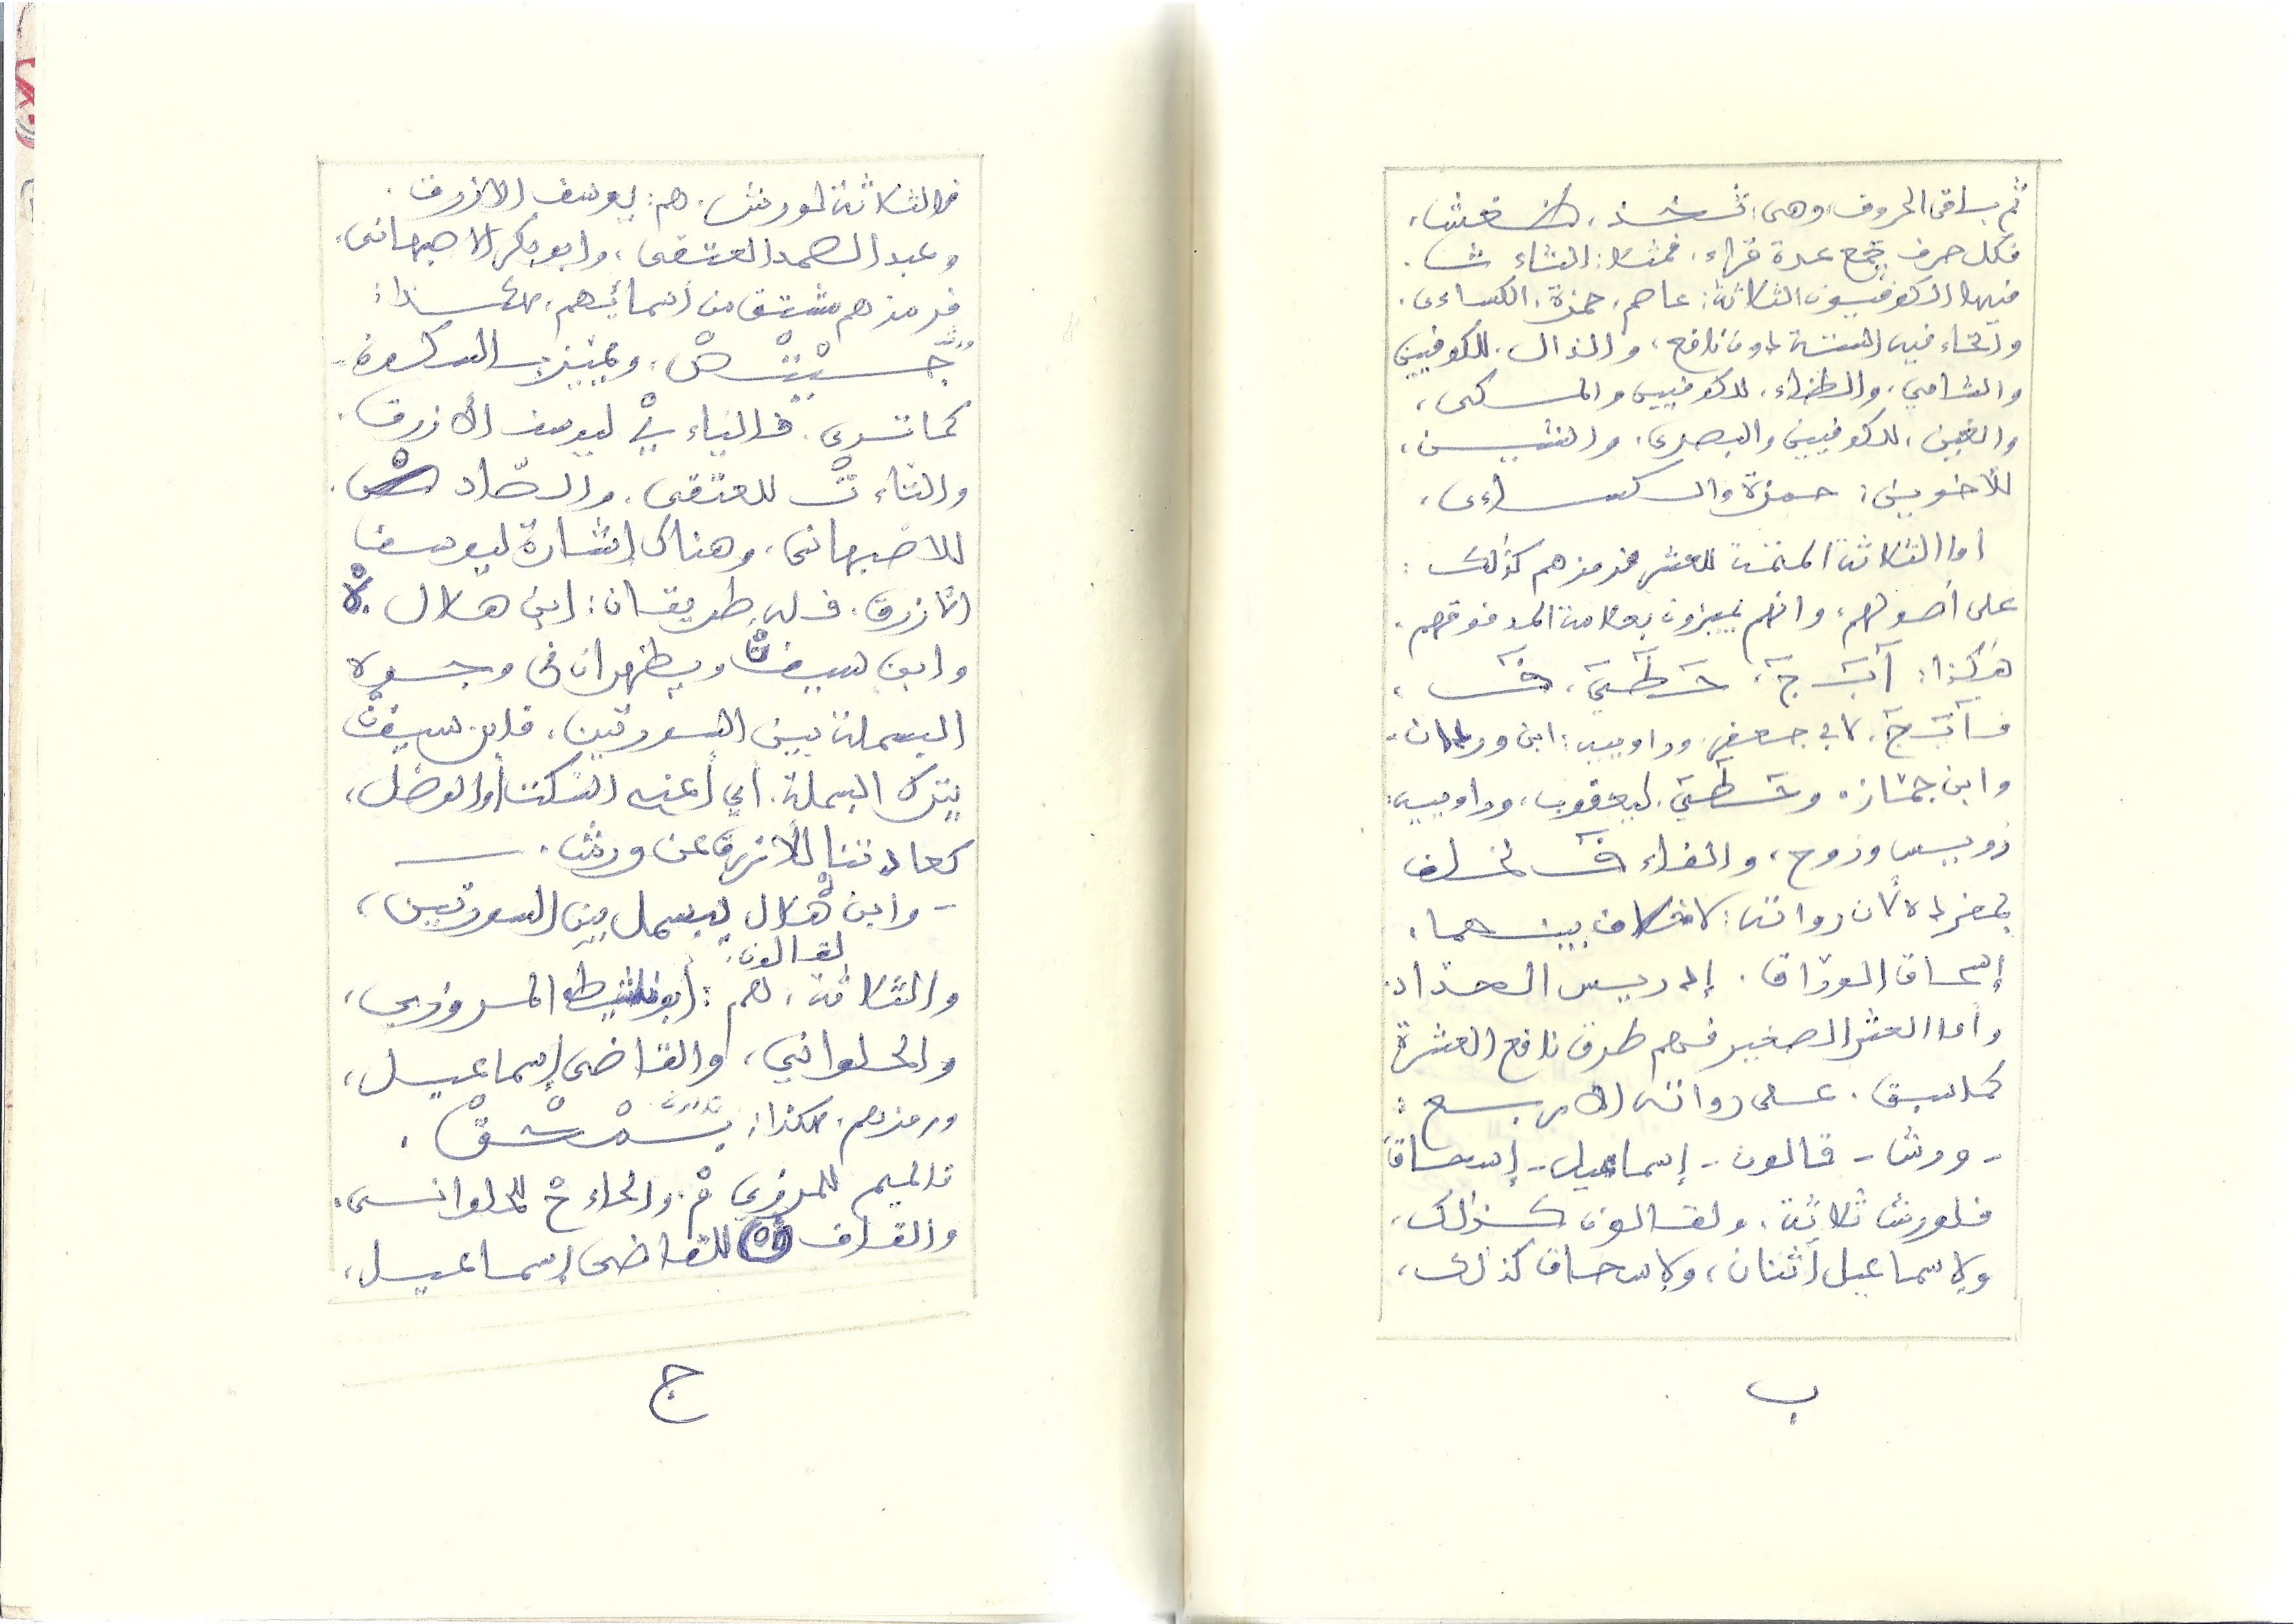 ثم باقى الحروف وهى: ثخذ، ظغش،
فكل حرف يجمع عدة قراء، فمثلا: الثاء ث.
فيها الكوفيون الثلاثة: عاصم، حمزة، الكساءى.
والخاء فيه الستة دون نافع، والذال. للكوفيين
والشامي، والظاء، للكوفيين والمكى،
والغين، للكوفيين والبصرى، والشين،
للأخوين: حمزة والكساءى،
أما الثلاثة المتممة للعشر فرمزهم كذلك:
على أصولهم، وانهم يميزون بعلامة المد فوقهم.
هكذا: آبٓجٓ، حٓطٓيٓ، فٓ،
فـآبٓجٓ. لابي جعفر. وراوييه: ابن وردان.
وابن جماز، وحٓطٓيٓ. ليعقوب، وراوييه:
رويس وروح، والفاء فٓ لخلف
بمفرده لأن رواته: لاخلاف بينهما.
إسحاق الوراق. إدريس الحداد.
وأما العشر الصغير فهم طرق نافع العشرة
كماسبق. على رواته الأربع:
- ورش - قالون - إسماعيل - إسحاق
فلورش ثلاثة، ولقالون كذلك،
ولاسماعيل اثنان، ولاسحاق كذلك،
ب
فالثلاثة لورش. هم: يوسف الازرق.
وعبد الصمد العتقى، وابوبكر الاصبهانى،
فرمزهم مشتق من أسمائهم، هكذا:
ويميز بالسكون.
كما ترى. فالياء يْ ليوسف الأزرق.
والتاء تْ للعتقى. والصّاد صْ.
للاصبهانى، وهناك إشارة ليوسف
الازرق. فله طريقان: ابن هلال هْ
وابن سيفْ ويظهران فى وجوه
البسملة بين السورتين، فابن سيف
يترك البسملة. أي أعنى السكت أوالوصل،
كعادتنا للأزرق عن ورش.
- وابن هلال يبسمل بين السورتين،
لقالون.
والثلاثة، هم: أبونشيط المروزي،
والحلواني، والقاضى إسماعيل،
ورمزهم. هكذا:
فالميم للمروزي مْ. والحاء حْ للحلوانى.
والقاف قْ للقاضى إسماعيل،
ج